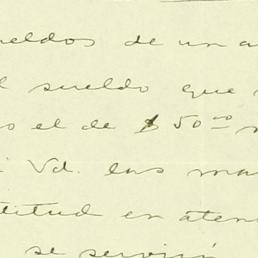 sueldos de un a
l sueldo que
o el de $50.00 m
i Vd. las ma
titud en aten
se servirá